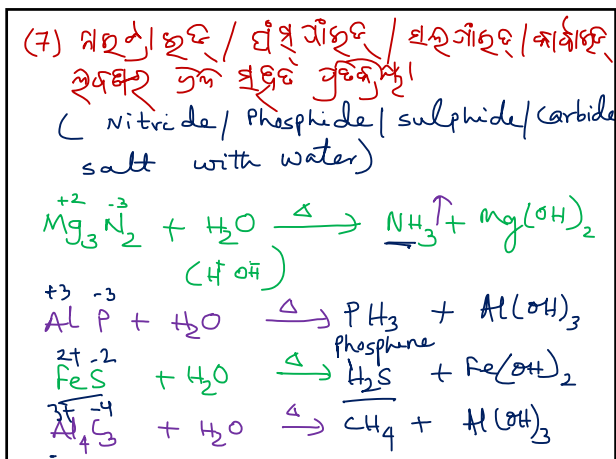 (7) ନାଇଟ୍ରାଇଡ୍ / ଫସ୍ଫାଇଡ୍ / ସଲଫାଇଡ୍ / କାର୍ବାଇଡ୍
ଲବଣର ଜଳ ସହିତ ପ୍ରତିକ୍ରିୟା।
( Nitride / Phosphide / sulphide / carbide
salt with water)
+2 -3
Mg₃N₂ + H₂O —Δ→ NH₃↑ + Mg(OH)₂
(H⁺ OH⁻)
+3 -3
Al P + H₂O —Δ→ PH₃ + Al(OH)₃
Phosphene
2+ -2
FeS + H₂O —Δ→ H₂S + Fe(OH)₂
3+ -4
Al₄C₃ + H₂O —Δ→ CH₄ + Al(OH)₃